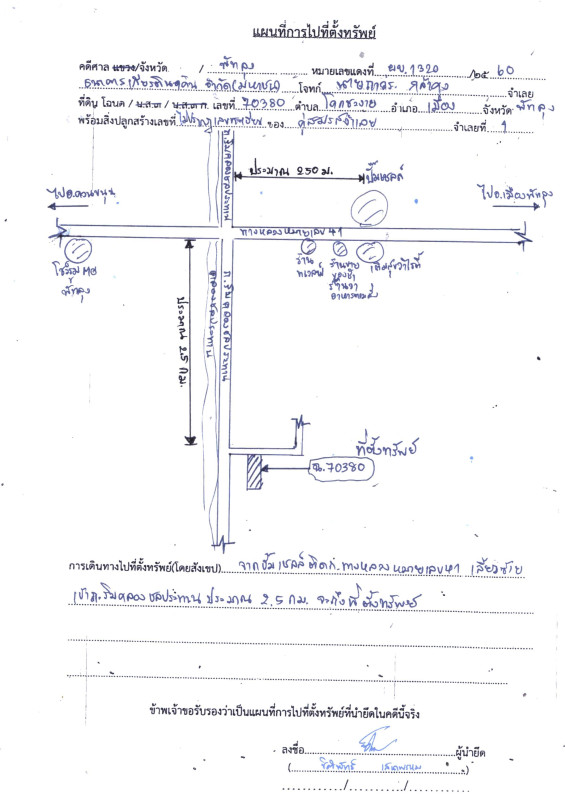 แผนที่การไปที่ตั้งทรัพย์
คดีศาล แขวง/จังหวัด / พัทลุง หมายเลขแดงที่ ผบ.1320 /๒๕ 60
ธนาคารเกียรตินาคิน จำกัด(มหาชน) โจทก์ จำเลย
ที่ดิน โฉนด / น.ส.๓ / น.ส.๓ ก. เลขที่ 70380 ตำบล โคกชะงาย อำเภอ เมือง จังหวัด พัทลุง
พร้อมสิ่งปลูกสร้างเลขที่ ไม่ปรากฏเลขทะเบียน ของ คู่สมรสจำเลย จำเลยที่ 1
ประมาณ 250 ม.
ปั๊มเชลล์
ไปอ.ควนขนุน
ไปอ.เมืองพัทลุง
ถ.ริมคลองชลประทาน
ทางหลวงหมายเลข 41
โชว์รูม MG
พัทลุง
ร้าน
ร้านขาย
ของชำ
ประมาณ 2.5 กม.
คลองชลประทาน
ถ.ริมคลองชลประทาน
ที่ตั้งทรัพย์
ฉ.70380
การเดินทางไปที่ตั้งทรัพย์(โดยสังเขป) จากปั้มเชลล์ติดถ.ทางหลวงหมายเลข41 เลี้ยวซ้าย
เข้าถ.ริมคลองชลประทาน ประมาณ 2.5 กม. จะถึงที่ตั้งทรัพย์
ข้าพเจ้าขอรับรองว่าเป็นแผนที่การไปที่ตั้งทรัพย์ที่นำยึดในคดีนี้จริง
ลงชื่อ ผู้นำยึด
( )
/ /